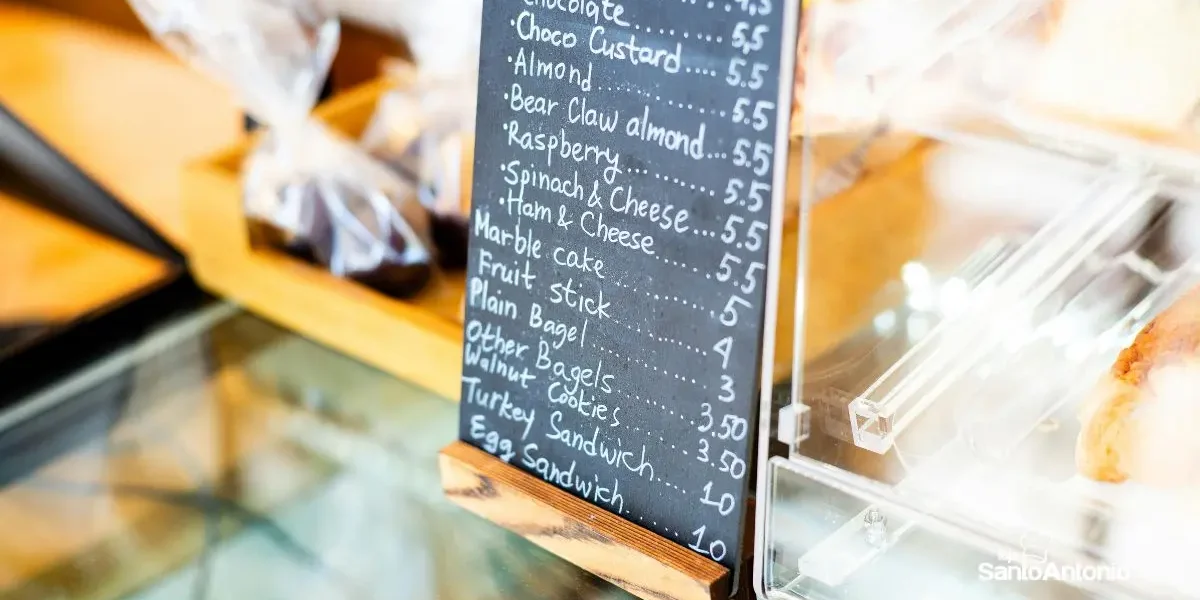 Chocolate....... 5,5
·Choco Custard.... 5.5
·Almond............... 5.5
·Bear Claw almond... 5.5
·Raspberry........... 5.5
·Spinach & Cheese... 5.5
·Ham & Cheese....... 5.5
Marble cake........... 5
Fruit stick............ 4
Plain Bagel........... 3
Other Bagels........ 3.50
Walnut Cookies..... 3.50
Turkey Sandwich.... 10
Egg Sandwich....... 10
SantoAntonio